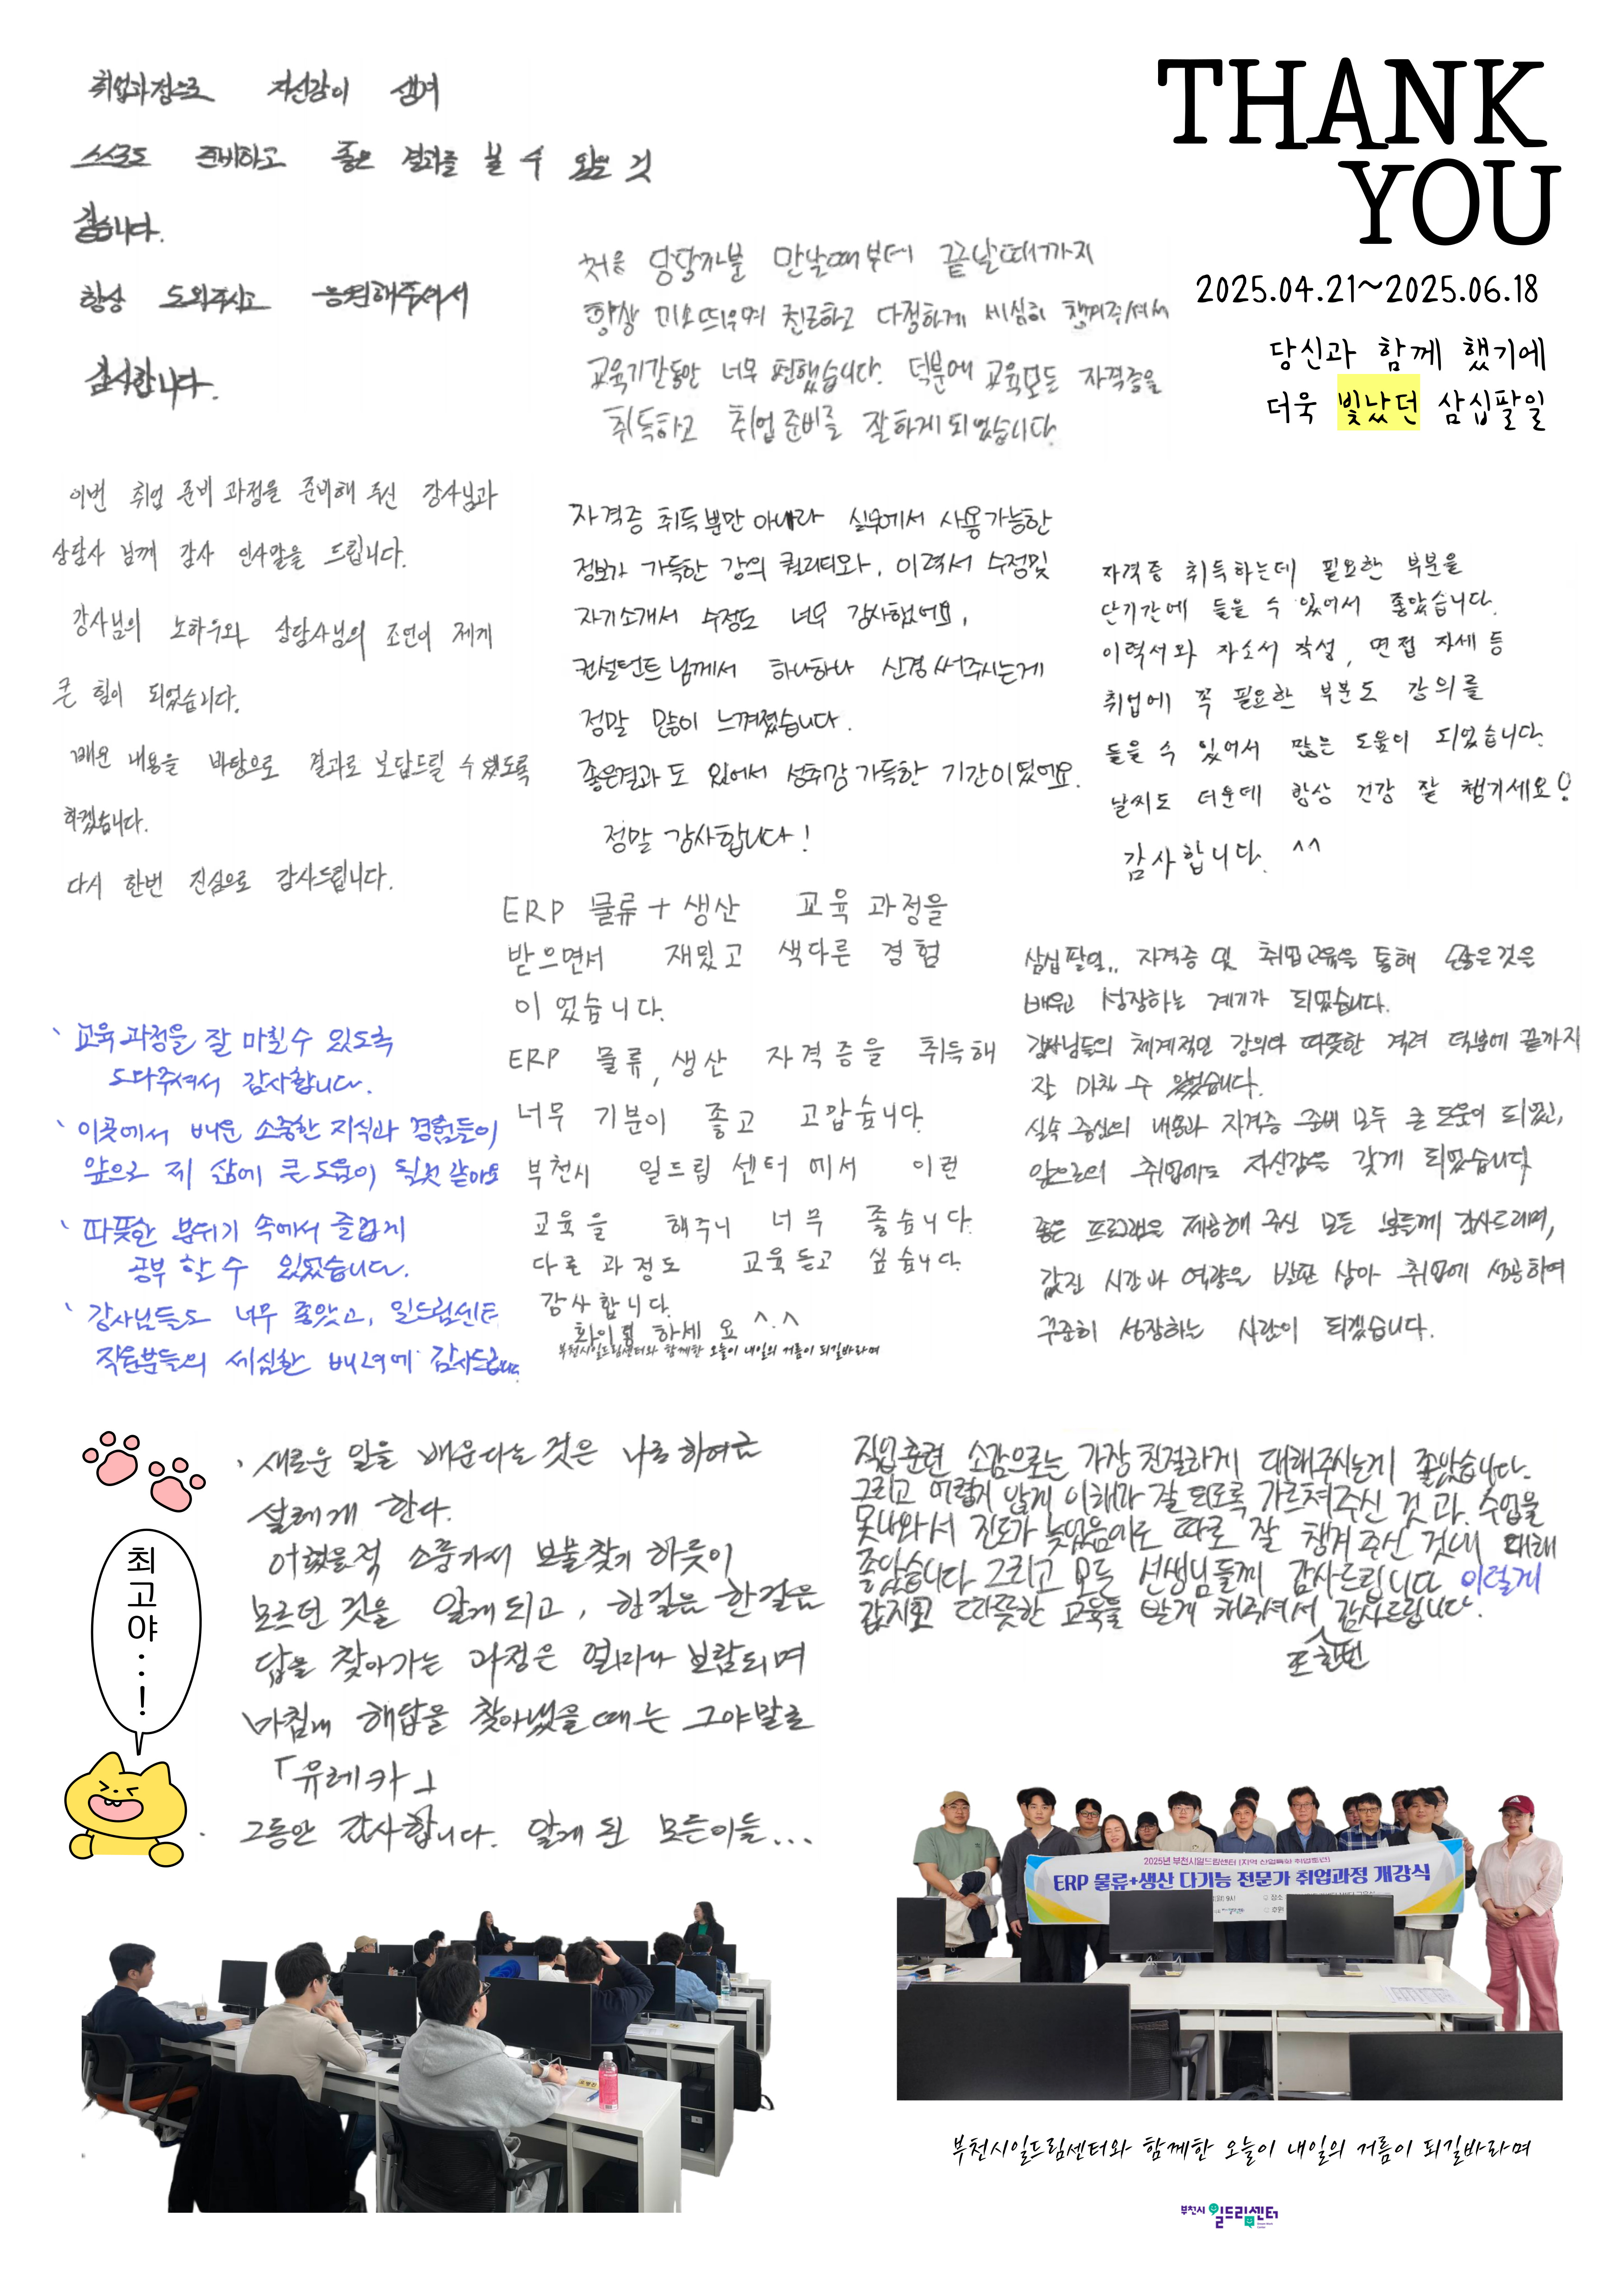 THANK
YOU
2025.04.21~2025.06.18
당신과 함께 했기에
더욱 빛났던 삼십팔일
취업과정으로 자신감이 생겨
스스로도 준비하고 좋은 결과를 볼 수 있는 것
같습니다.
항상 도와주시고 응원해주셔서
감사합니다.
처음 담당자분 만날때부터 끝날때까지
항상 미소띄우며 친근하고 다정하게 세심히 챙겨주셔서
교육기간동안 너무 편했습니다. 덕분에 교육모든 자격증을
취득하고 취업준비를 잘하게되었습니다.
이번 취업 준비 과정을 준비해 주신 강사님과
상담사 님께 감사 인사말을 드립니다.
강사님의 노하우와 상담사님의 조언이 제게
큰 힘이 되었습니다.
배운 내용을 바탕으로 결과로 보답드릴 수 있도록
하겠습니다.
다시 한번 진심으로 감사드립니다.
자격증 취득뿐만 아니라 실무에서 사용가능한
정보가 가득한 강의 퀄리티와, 이력서 수정및
자기소개서 수정도 너무 감사했어요,
컨설턴트님께서 하나하나 신경써주시는게
정말 많이 느껴졌습니다.
좋은결과도 있어서 성취감 가득한 기간이었어요.
정말 감사합니다!
자격증 취득하는데 필요한 부분을
단기간에 들을 수 있어서 좋았습니다.
이력서와 자소서 작성, 면접 자세 등
취업에 꼭 필요한 부분도 강의를
들을 수 있어서 많은 도움이 되었습니다.
날씨도 더운데 항상 건강 잘 챙기세요!
감사합니다. ^^
ERP 물류+생산 교육과정을
받으면서 재밌고 색다른 경험
이었습니다.
ERP 물류, 생산 자격증을 취득해
너무 기분이 좋고 고맙습니다.
부천시 일드림 센터에서 이런
교육을 해주니 너무 좋습니다.
다른 과정도 교육듣고 싶습니다.
감사합니다.
화이팅 하세요 ^.^
부천시일드림센터와 함께한 오늘이 내일의 거름이 되길바라며
삼십팔일.. 자격증 및 취업교육을 통해 많은것을
배우고 성장하는 계기가 되었습니다.
강사님들의 체계적인 강의와 따뜻한 격려 덕분에 끝까지
잘 마칠 수 있었습니다.
실속 중심의 내용과 자격증 준비 모두 큰 도움이 되었고,
앞으로의 취업에도 자신감을 갖게 되었습니다
좋은 프로그램을 제공해 주신 모든 분들께 감사드리며,
값진 시간과 역량을 발판 삼아 취업에 성공하여
꾸준히 성장하는 사람이 되겠습니다.
` 교육과정을 잘 마칠수 있도록
도와주셔서 감사합니다.
` 이곳에서 배운 소중한 지식과 경험들이
앞으로 제 삶에 큰도움이 될것 같아요
` 따뜻한 분위기 속에서 즐겁게
공부 할 수 있었습니다.
` 강사님들도 너무 좋았고, 일드림센터
직원분들의 세심한 배려에 감사드립니다
최고야..!
· 새로운 일을 배운다는 것은 나로 하여금
설레게 한다.
어렸을적 소풍가서 보물찾기 하듯이
모르던 것을 알게되고, 한걸음 한걸음
답을 찾아가는 과정은 얼마나 보람되며
마침내 해답을 찾아냈을때는 그야말로
「유레카」
· 그동안 감사합니다. 알게 된 모든이들...
직업훈련 소감으로는 가장 친절하게 대해주시는게 좋았습니다.
그리고 어렵지 않게 이해가 잘 되도록 가르쳐주신 것과. 수업을
못나와서 진도가 늦었음에도 따로 잘 챙겨주신 것에 대해
좋았습니다. 그리고 모든 선생님들께 감사드립니다 이렇게
값지고 따뜻한 교육을 받게 해주셔서 감사드립니다.
또 한번
2025년 부천시일드림센터 (지역 산업특화 취업훈련)
ERP 물류+생산 다기능 전문가 취업과정 개강식
부천시일드림센터와 함께한 오늘이 내일의 거름이 되길바라며
부천시 일드림센터